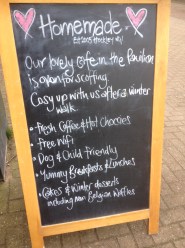 Homemade
Our lovely cafe in the Pavilion
is open for scoffing
Cosy up with us after a winter
walk
• Fresh Coffee & Hot Choccies
• Free WiFi
• Dog & Child friendly
• Yummy Breakfasts & Lunches
• Cakes & Winter desserts
including new Belgian Waffles